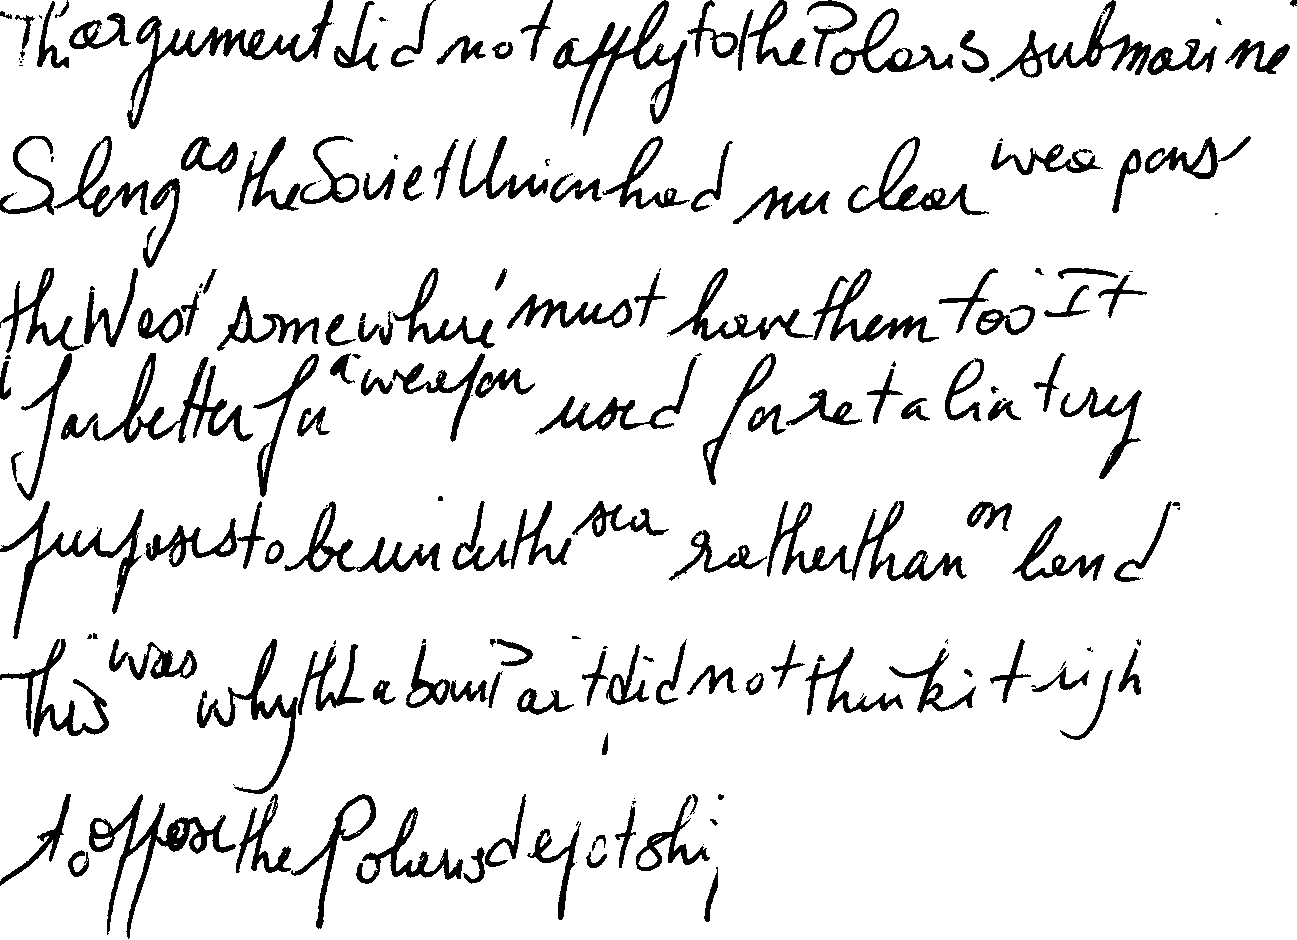 This argument did not apply to the Polaris submarine
So long as the Soviet Union had nuclear weapons
the West somewhere must have them too It
far better for a weapon used for retaliatory
purposes to be under the sea rather than on land
This was why the Labour Party did not think it right
to oppose the Polaris depot ship